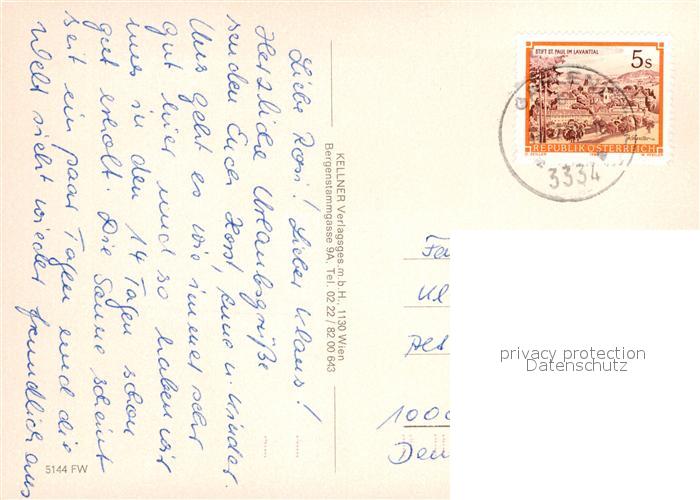 Liebe Rosi! Lieber Klaus!
Herzliche Urlaubsgrüße
senden Euch Horst, Anne u. Kinder.
Uns geht es wie immer sehr
gut hier und so haben wir
uns in den 14 Tagen schon
gut erholt. Die Sonne scheint
seit ein paar Tagen und die
Welt sieht wieder freundlich aus
5144 FW
KELLNER Verlagsges.m.b.H., 1130 Wien
Bergenstammgasse 9A, Tel. 02 22 / 82 00 643
STIFT ST. PAUL IM LAVANTTAL
5s
REPUBLIK ÖSTERREICH
3334
1000
privacy protection
Datenschutz